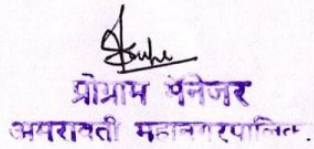 प्रोग्राम मॅनेजर
अमरावती महानगरपालिका.